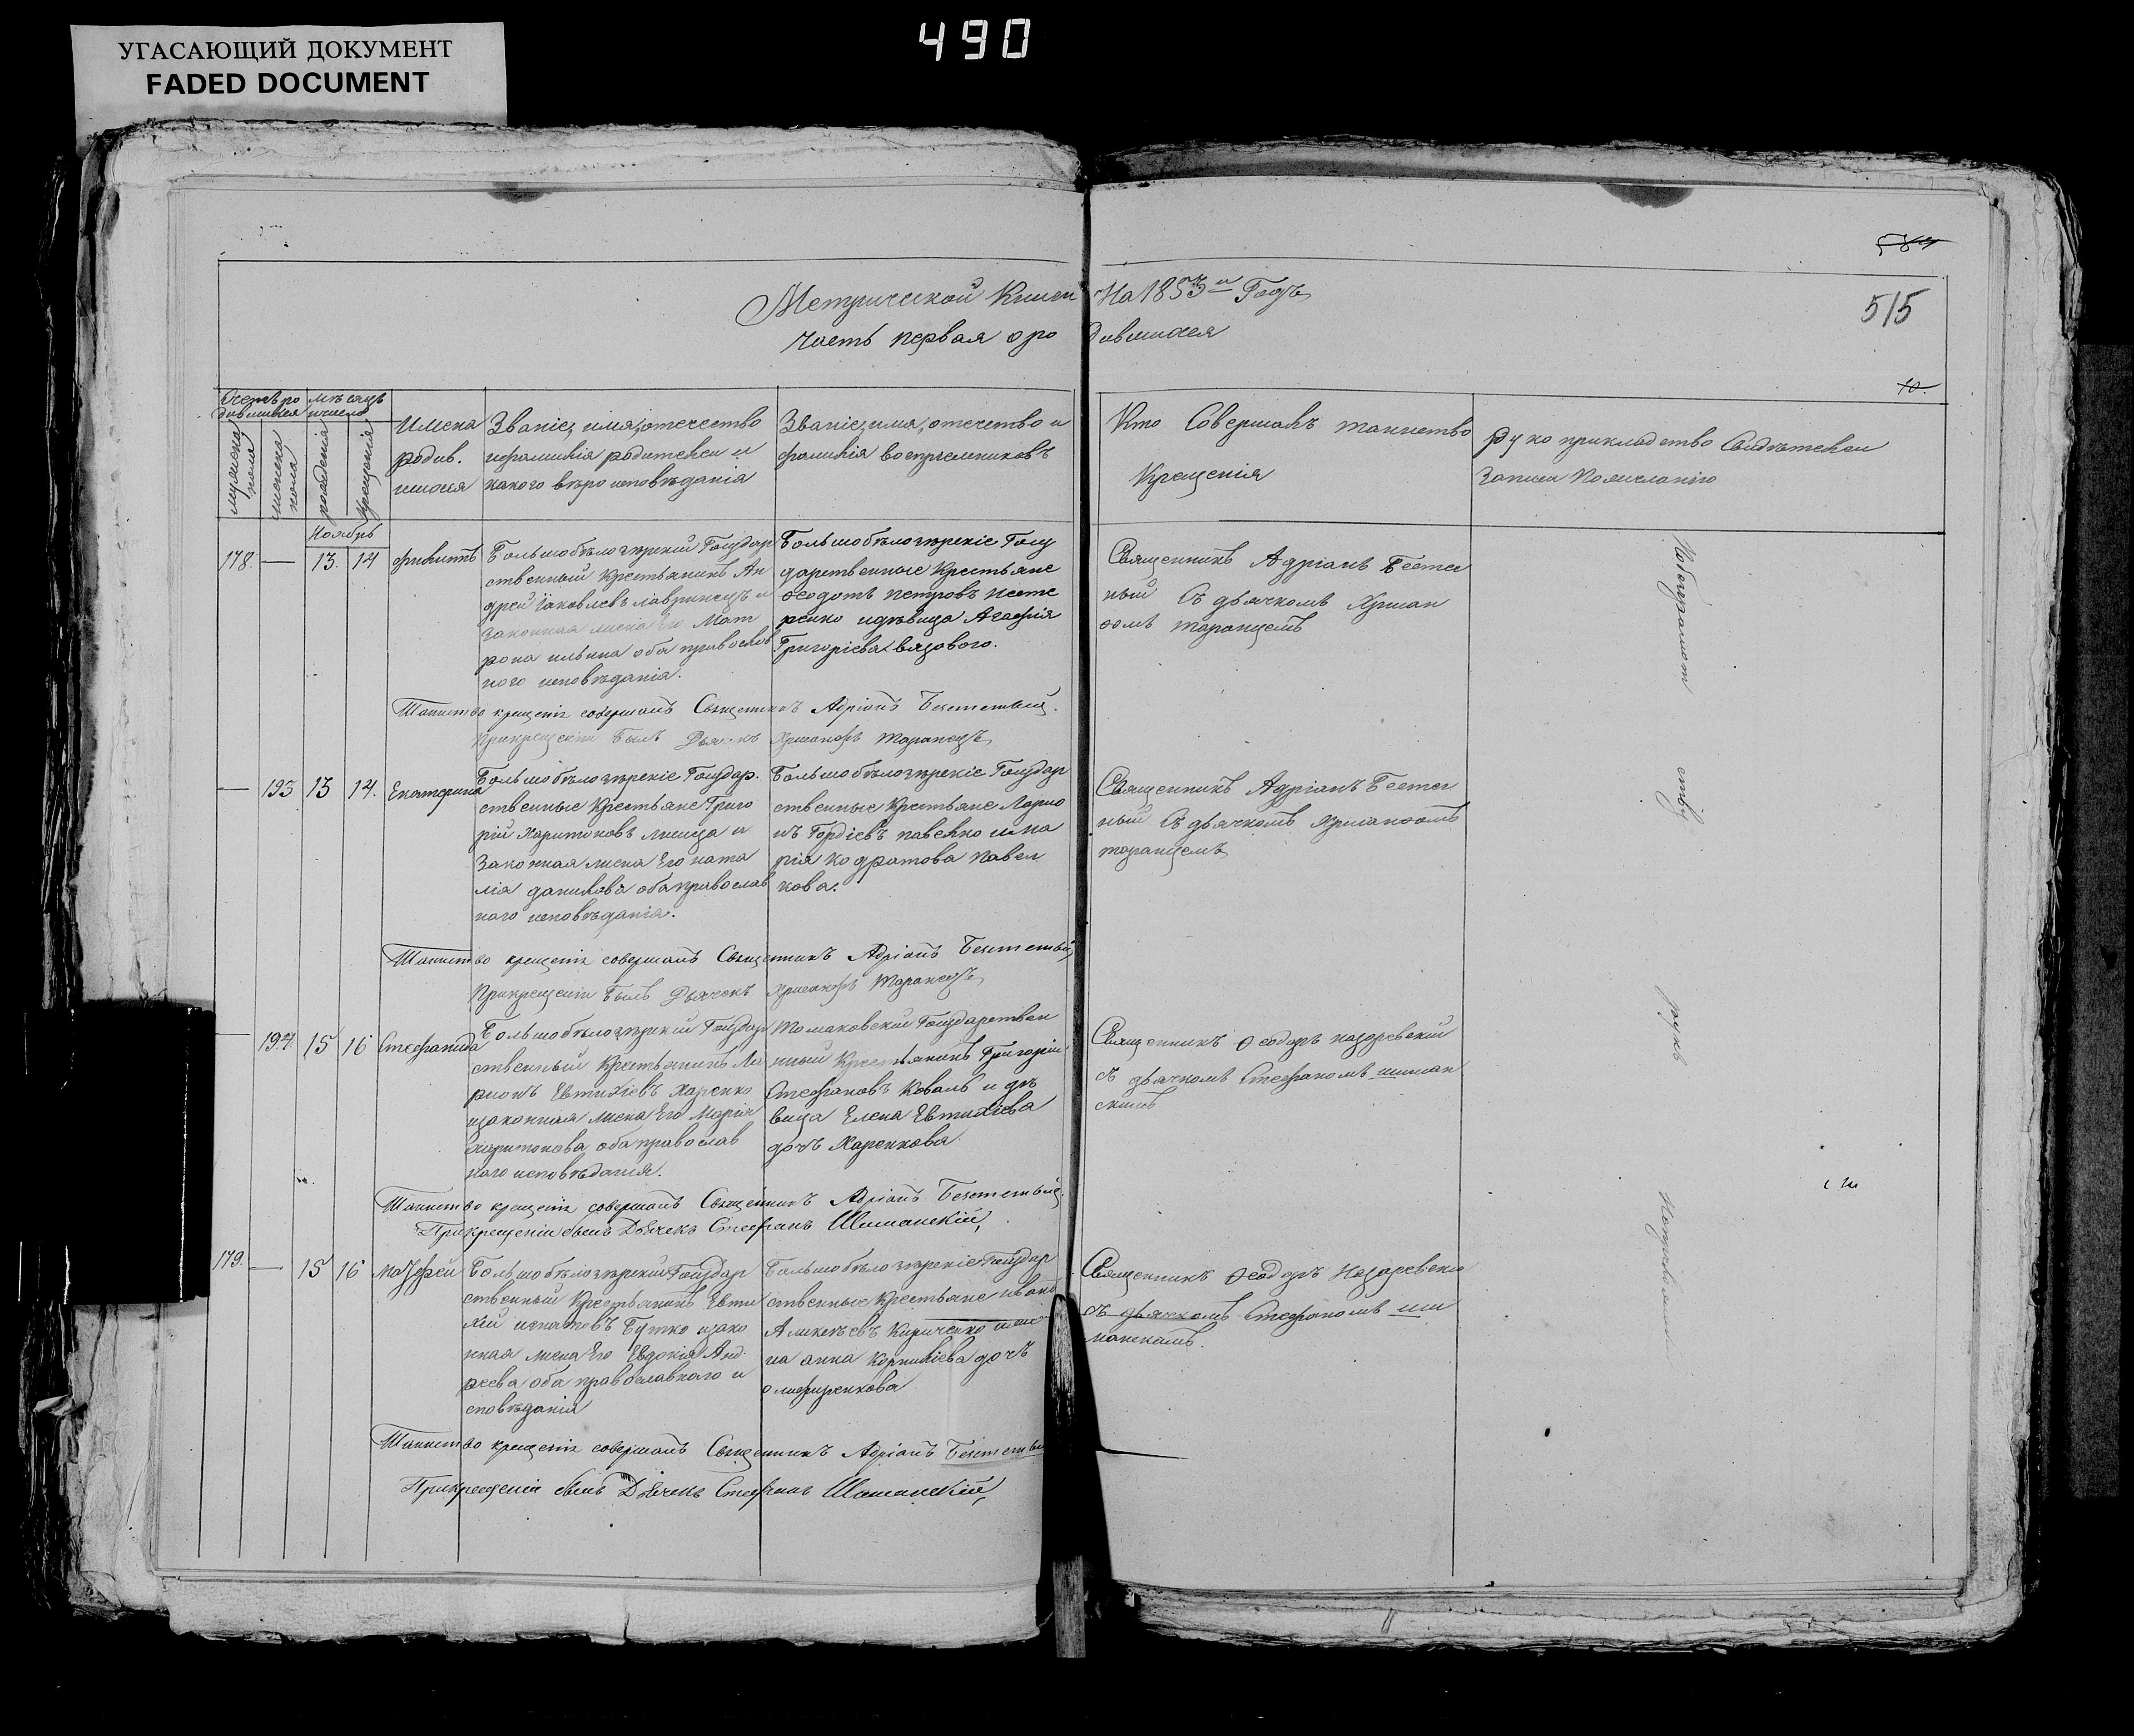 490
УГАСАЮЩИЙ ДОКУМЕНТ
FADED DOCUMENT
Метрической Книги На 1853й Годъ
515
Часть первая о родившихся
Счетъ родившихся
мѣсяцъ и число
мужеска пола
женска пола
рождения
крещения
Имена
родив.
шихся
Званіе, имя, отечество
и фамилія родителей и
какого вѣро исповѣданія
Званіе, имя, отечество и
фамилія воспріемниковъ
Кто Совершалъ таинство
Крещенія
Руко прикладство Свидѣтелей
записи по желанію
Ноябрь
178. — 13. 14 Филиппъ
Большобѣлозѣрскій Государ
ственный Крестьянинъ Ан
дрей Іаковлевъ лавринецъ и
законная жена Его Мат
рона ильина оба православ
ного исповѣданія.
Большобѣлозѣрскіе Госу
дарственные Крестьяне
Ѳеодотъ петровъ несте
ренко и дѣвица Агафія
Григоріева вязового.
Священникъ Адріанъ Безтег
ный Съ дьячкомъ Хрисан
ѳомъ таранцемъ
Таинство крещенія совершалъ Священникъ Адріанъ
При крещеніи былъ Дьячекъ Хрисанфъ Таранецъ
— 193 13 14. Екатерина
Большобѣлозѣрскіе Государ.
ственные Крестьяне Григо
рій Харитоновъ лисица и
Законная жена Его ната
лія данилова оба православ
ного исповѣданія.
Большобѣлозѣрскіе Государ
ственные Крестьяне Ларио
нъ Гордіевъ павенко и ма
рія кодратова павен
кова.
Священникъ Адріанъ Безтег
ный Съ дьячкомъ Хрисанѳомъ
таранцемъ
Таинство крещенія совершалъ Священникъ Адріанъ
При крещеніи былъ Дьячекъ Хрисанфъ Таранецъ
— 194. 15 16 Стефанида
Большобѣлозѣрскій Государ
ственный Крестьянинъ Ла
рионъ Евтихіевъ Харенко
и законная жена Его Марія
Харитонова оба православ
ного исповѣданія.
Томаковскій Государствен
ный Крестьянинъ Григорій
Стефановъ Коваль и дѣ
вица Елена Евтихіева
дочь Харенкова
Священникъ Ѳеодоръ назаревскій
съ дьячкомъ Стефаномъ шиман
скимъ
Таинство крещенія совершалъ Священникъ Адріанъ
При крещеніи былъ Дьячекъ Стефанъ Шиманскій
179. — 15 16 Матфей
Большобѣлозѣрскій Государ
ственный Крестьянинъ Евти
хій игнатовъ Бутко и зако
нная жена Его Евдокія Анд
реева оба православного и
сповѣданія
Большобѣлозѣрскіе Государ
ственные Крестьяне иванъ
Алексѣевъ Кириченко и же
на анна Корниліева дочь
олиференкова
Священникъ Ѳеодоръ Назаревскій
съ дьячкомъ Стефаномъ ши
манскимъ.
Таинство крещенія совершалъ Священникъ Адріанъ
При крещеніи былъ Дьячекъ Стефанъ Шиманскій